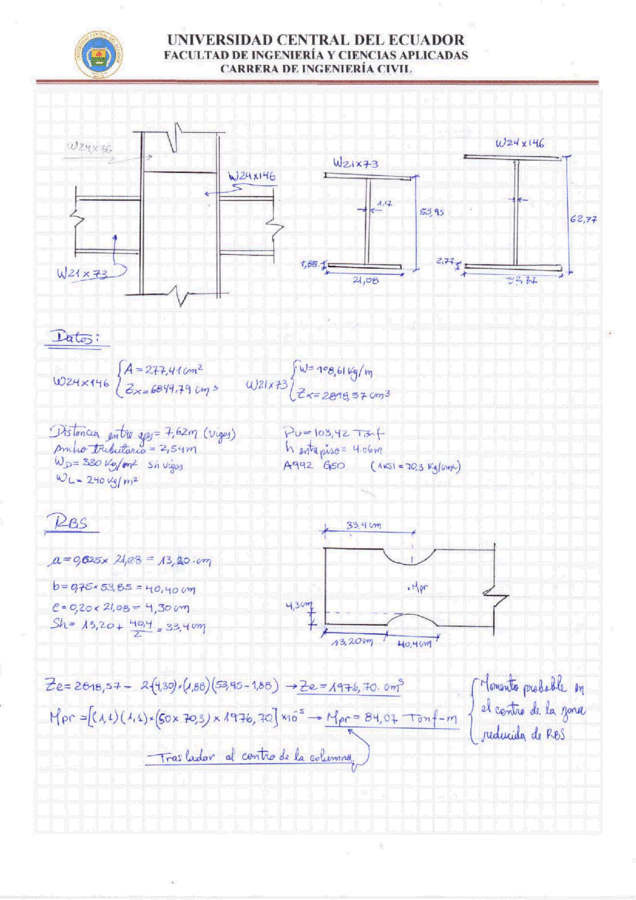 UNIVERSIDAD CENTRAL DEL ECUADOR
FACULTAD DE INGENIERÍA Y CIENCIAS APLICADAS
CARRERA DE INGENIERÍA CIVIL
W24x76
W24x146
W21x73
W21x73
1.17
53,95
1,88
21,08
W24x146
62,77
2.77
Datos:
W24x146 { A = 277,41 cm²
Zx = 6849,79 cm³
W21x73 { W = 108,61 Kg/m
Zx = 2818,57 cm³
Distancia entre ejes = 7,62m (vigas)
Ancho tributario = 2,54m
WD = 330 Kg/m² sin vigas
WL = 240 Kg/m²
Pu = 103,42 Tonf
h entrepiso = 4.06m
A992 G50 (1KSI = 70,3 Kg/cm²)
RBS
a = 0,625 x 21,08 = 13,20 cm
b = 0,75 x 53,85 = 40,40 cm
c = 0,20 x 21,08 = 4,30 cm
Sh = 13,20 + 40,4/2 = 33,4 cm
33,4 cm
Mpr
4,3cm
13,20cm
40,4cm
Ze = 2818,57 - 2(4,30)·(1,88)(53,95 - 1,88) → Ze = 1976,70 cm³
Mpr = [(1,1)(1,1)x(50x 70,3) x 1976,70] x10⁻⁵ → Mpr = 84,07 Tonf-m
Momento probable en
el centro de la zona
reducida de RBS
Trasladar al centro de la columna